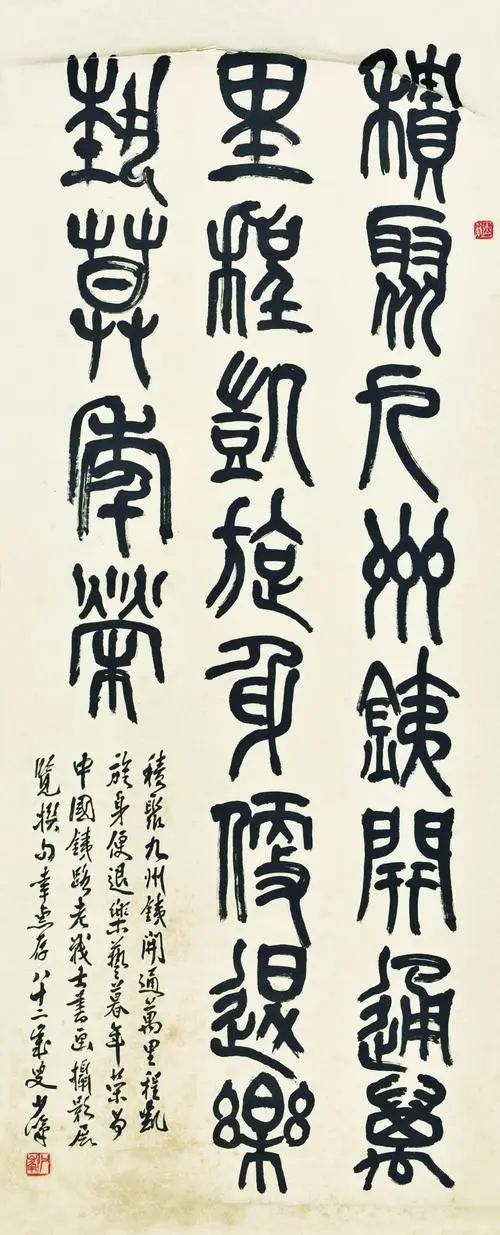 積聚九州銕開通萬
里程凱旋身便退樂
埶莫年榮
積聚九州銕開通萬里程凱
旋身便退樂藝暮年榮為
中國銕路老戰士書画攝影展
覽撰句幸存八十二歲史少峰